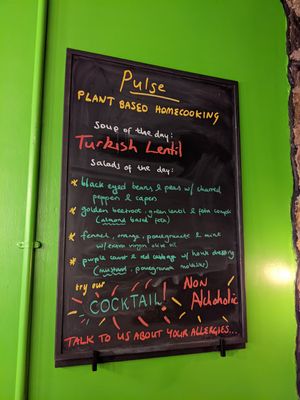 Pulse
PLANT BASED HOMECOOKING
Soup of the day:
Turkish Lentil
Salads of the day:
* black eyed beans & peas w/ charred
peppers & capers
* golden beetroot, green lentil & feta
(almond based feta)
* fennel, orange, pomegranate & mint
w/ extra virgin olive oil
* purple carrot & red cabbage w/ house dressing
(mustard, pomegranate molasses)
try our
COCKTAIL!
NON
Alcoholic
TALK TO US ABOUT YOUR ALLERGIES...